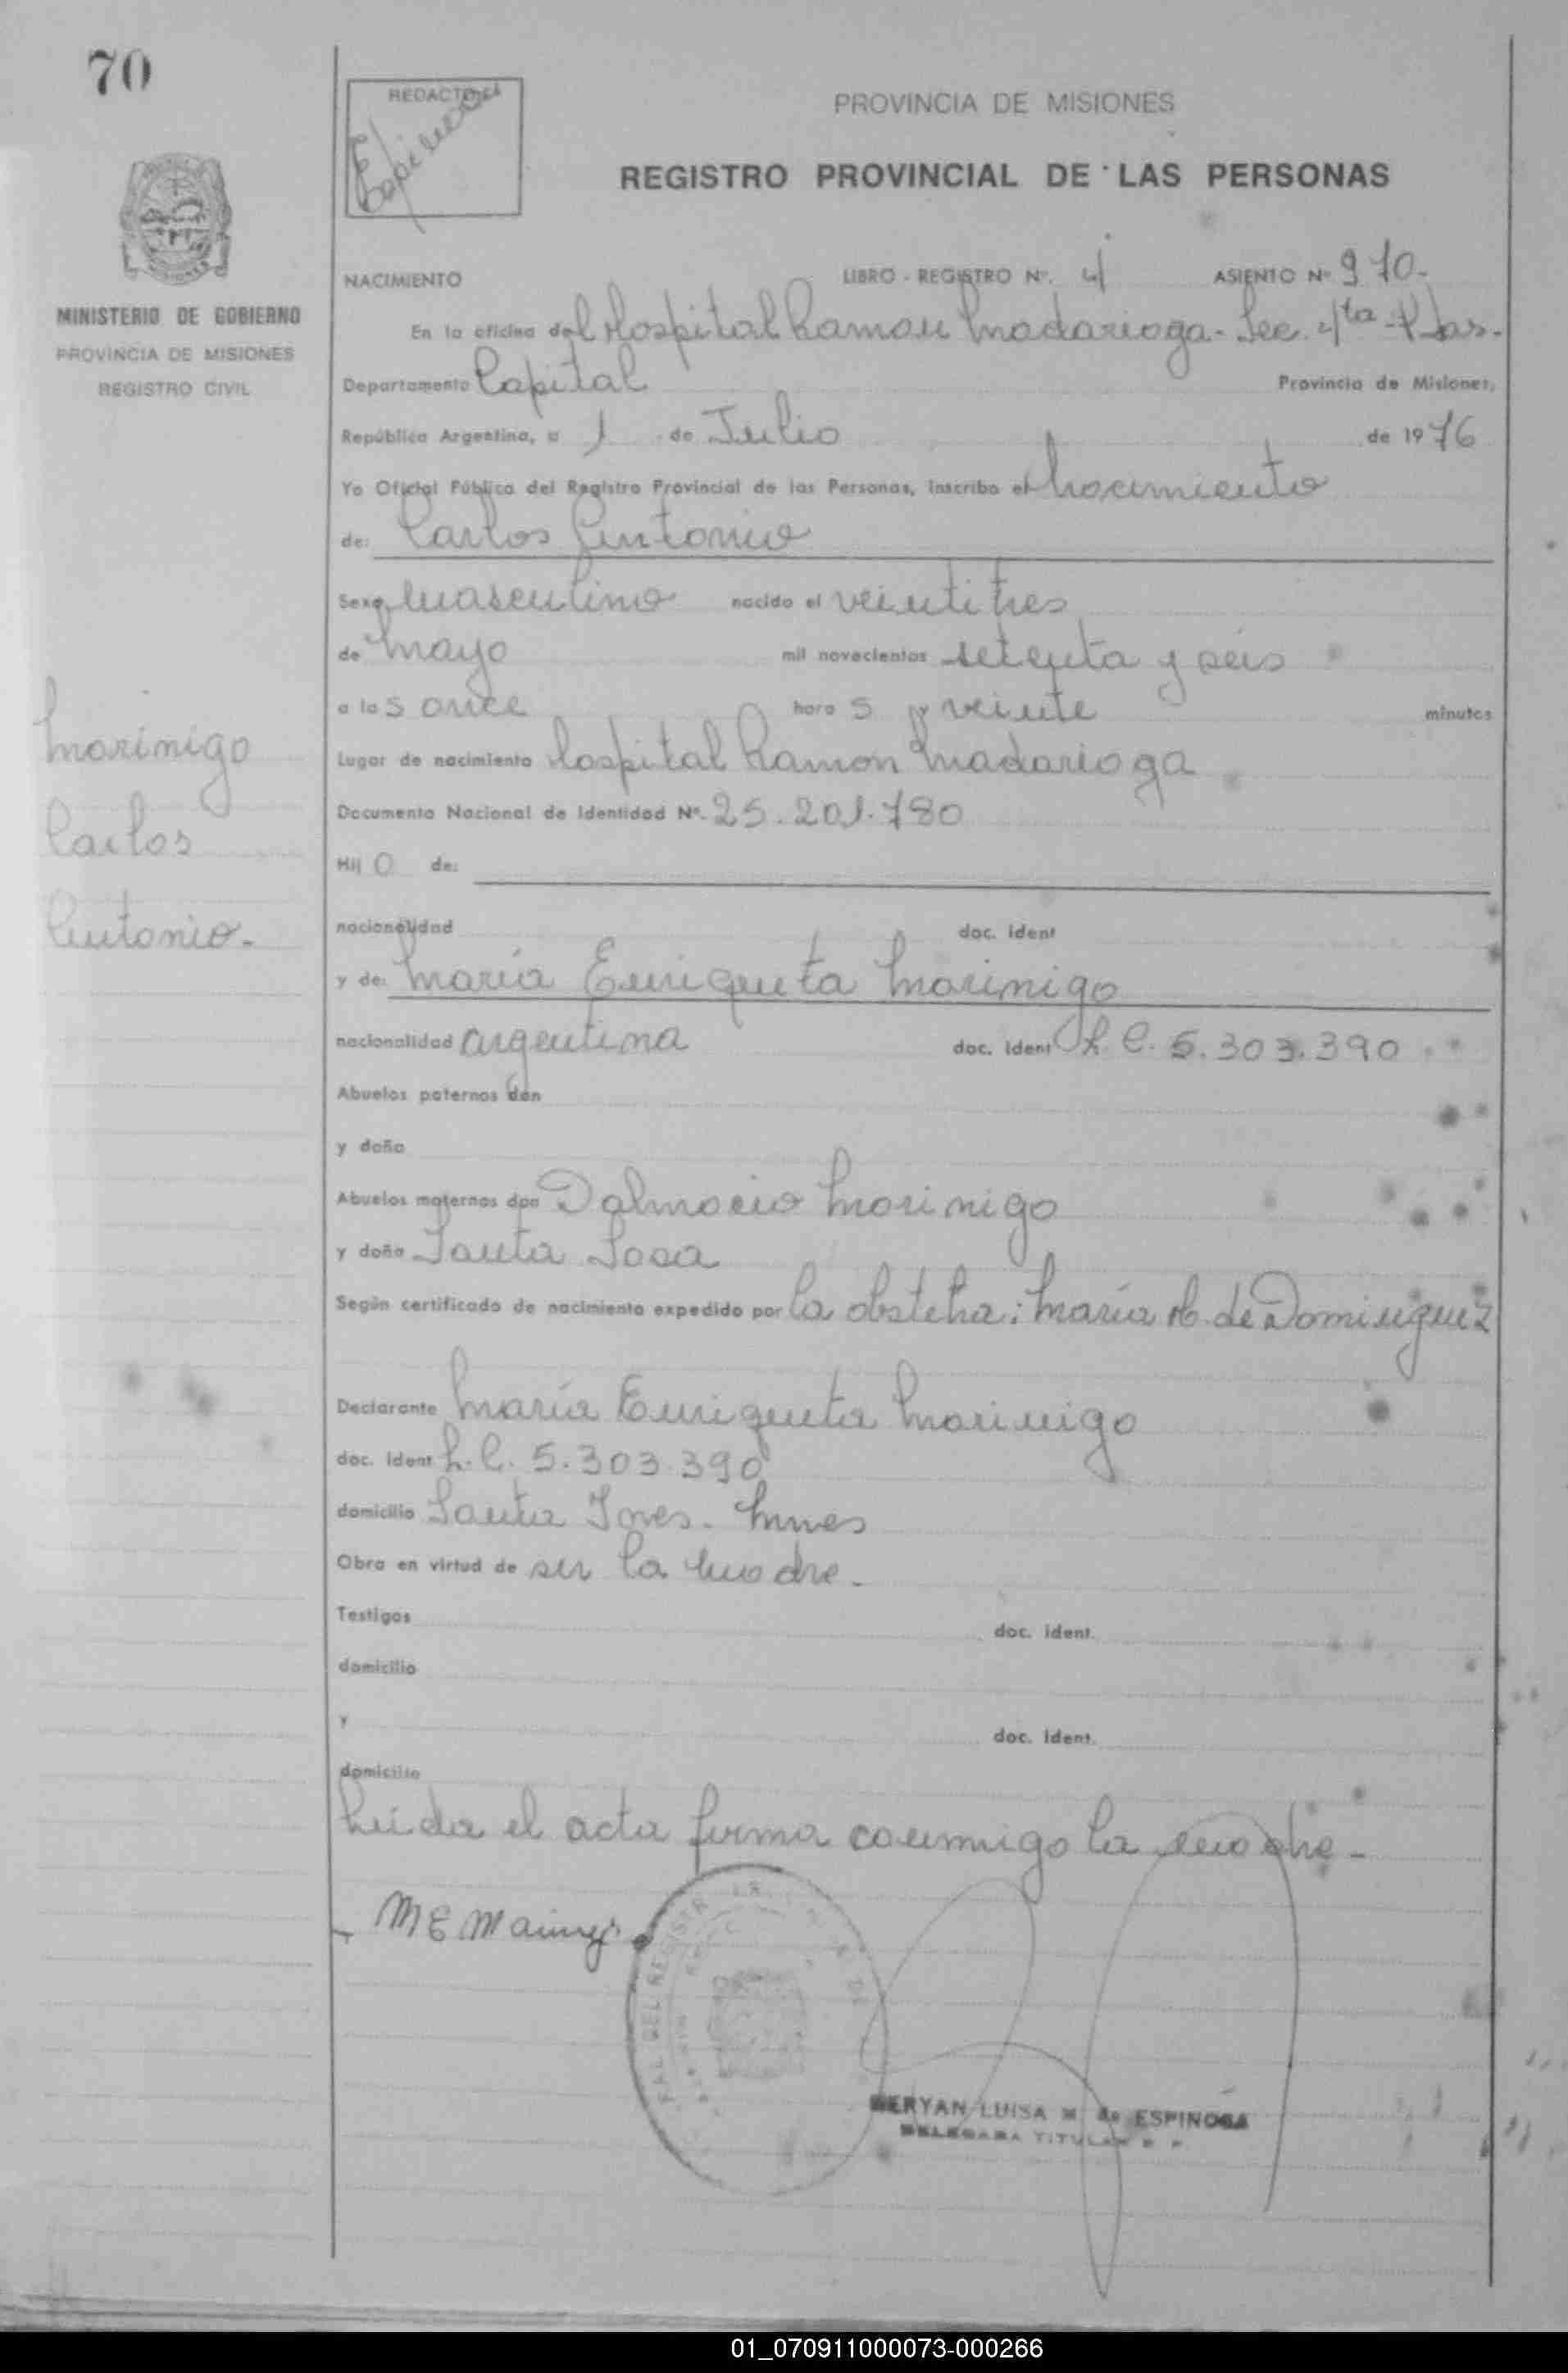 70
REDACTO EL
Espinosa
PROVINCIA DE MISIONES
REGISTRO PROVINCIAL DE LAS PERSONAS
MINISTERIO DE GOBIERNO
PROVINCIA DE MISIONES
REGISTRO CIVIL
NACIMIENTO LIBRO - REGISTRO Nº. 4 ASIENTO Nº 970.-
En la oficina del Hospital Ramon Madariaga - Sec. 4ta - Pdas.
Departamento Capital Provincia de Misiones,
República Argentina, a 1 de Julio de 1976
Yo Oficial Público del Registro Provincial de las Personas, inscribo el Nacimiento
de: Carlos Antonio
Sexo Masculino nacido el veintitres
de Mayo mil novecientos setenta y seis
a las once horas y veinte minutos
Morinigo
Carlos
Antonio.-
Lugar de nacimiento Hospital Ramon Madariaga
Documento Nacional de Identidad Nº. 25.201.780
Hijo de:
nacionalidad doc. ident
y de: María Enriqueta Morinigo
nacionalidad argentina doc. ident L.C. 5.303.390
Abuelos paternos don
y doña
Abuelos maternos don Dalmacio Morinigo
y doña Santa Sosa
Según certificado de nacimiento expedido por la obstetra: María de Dominguez
Declarante María Enriqueta Morinigo
doc. ident L.C. 5.303.390
domicilio Santa Ines - Mnes
Obra en virtud de ser la madre.-
Testigos doc. ident.
domicilio
y doc. ident.
domicilio
Leída el acta firma conmigo la madre.-
M E
NERYAN LUISA M. de ESPINOSA
DELEGADA TITULAR R. P.
01_070911000073-000266